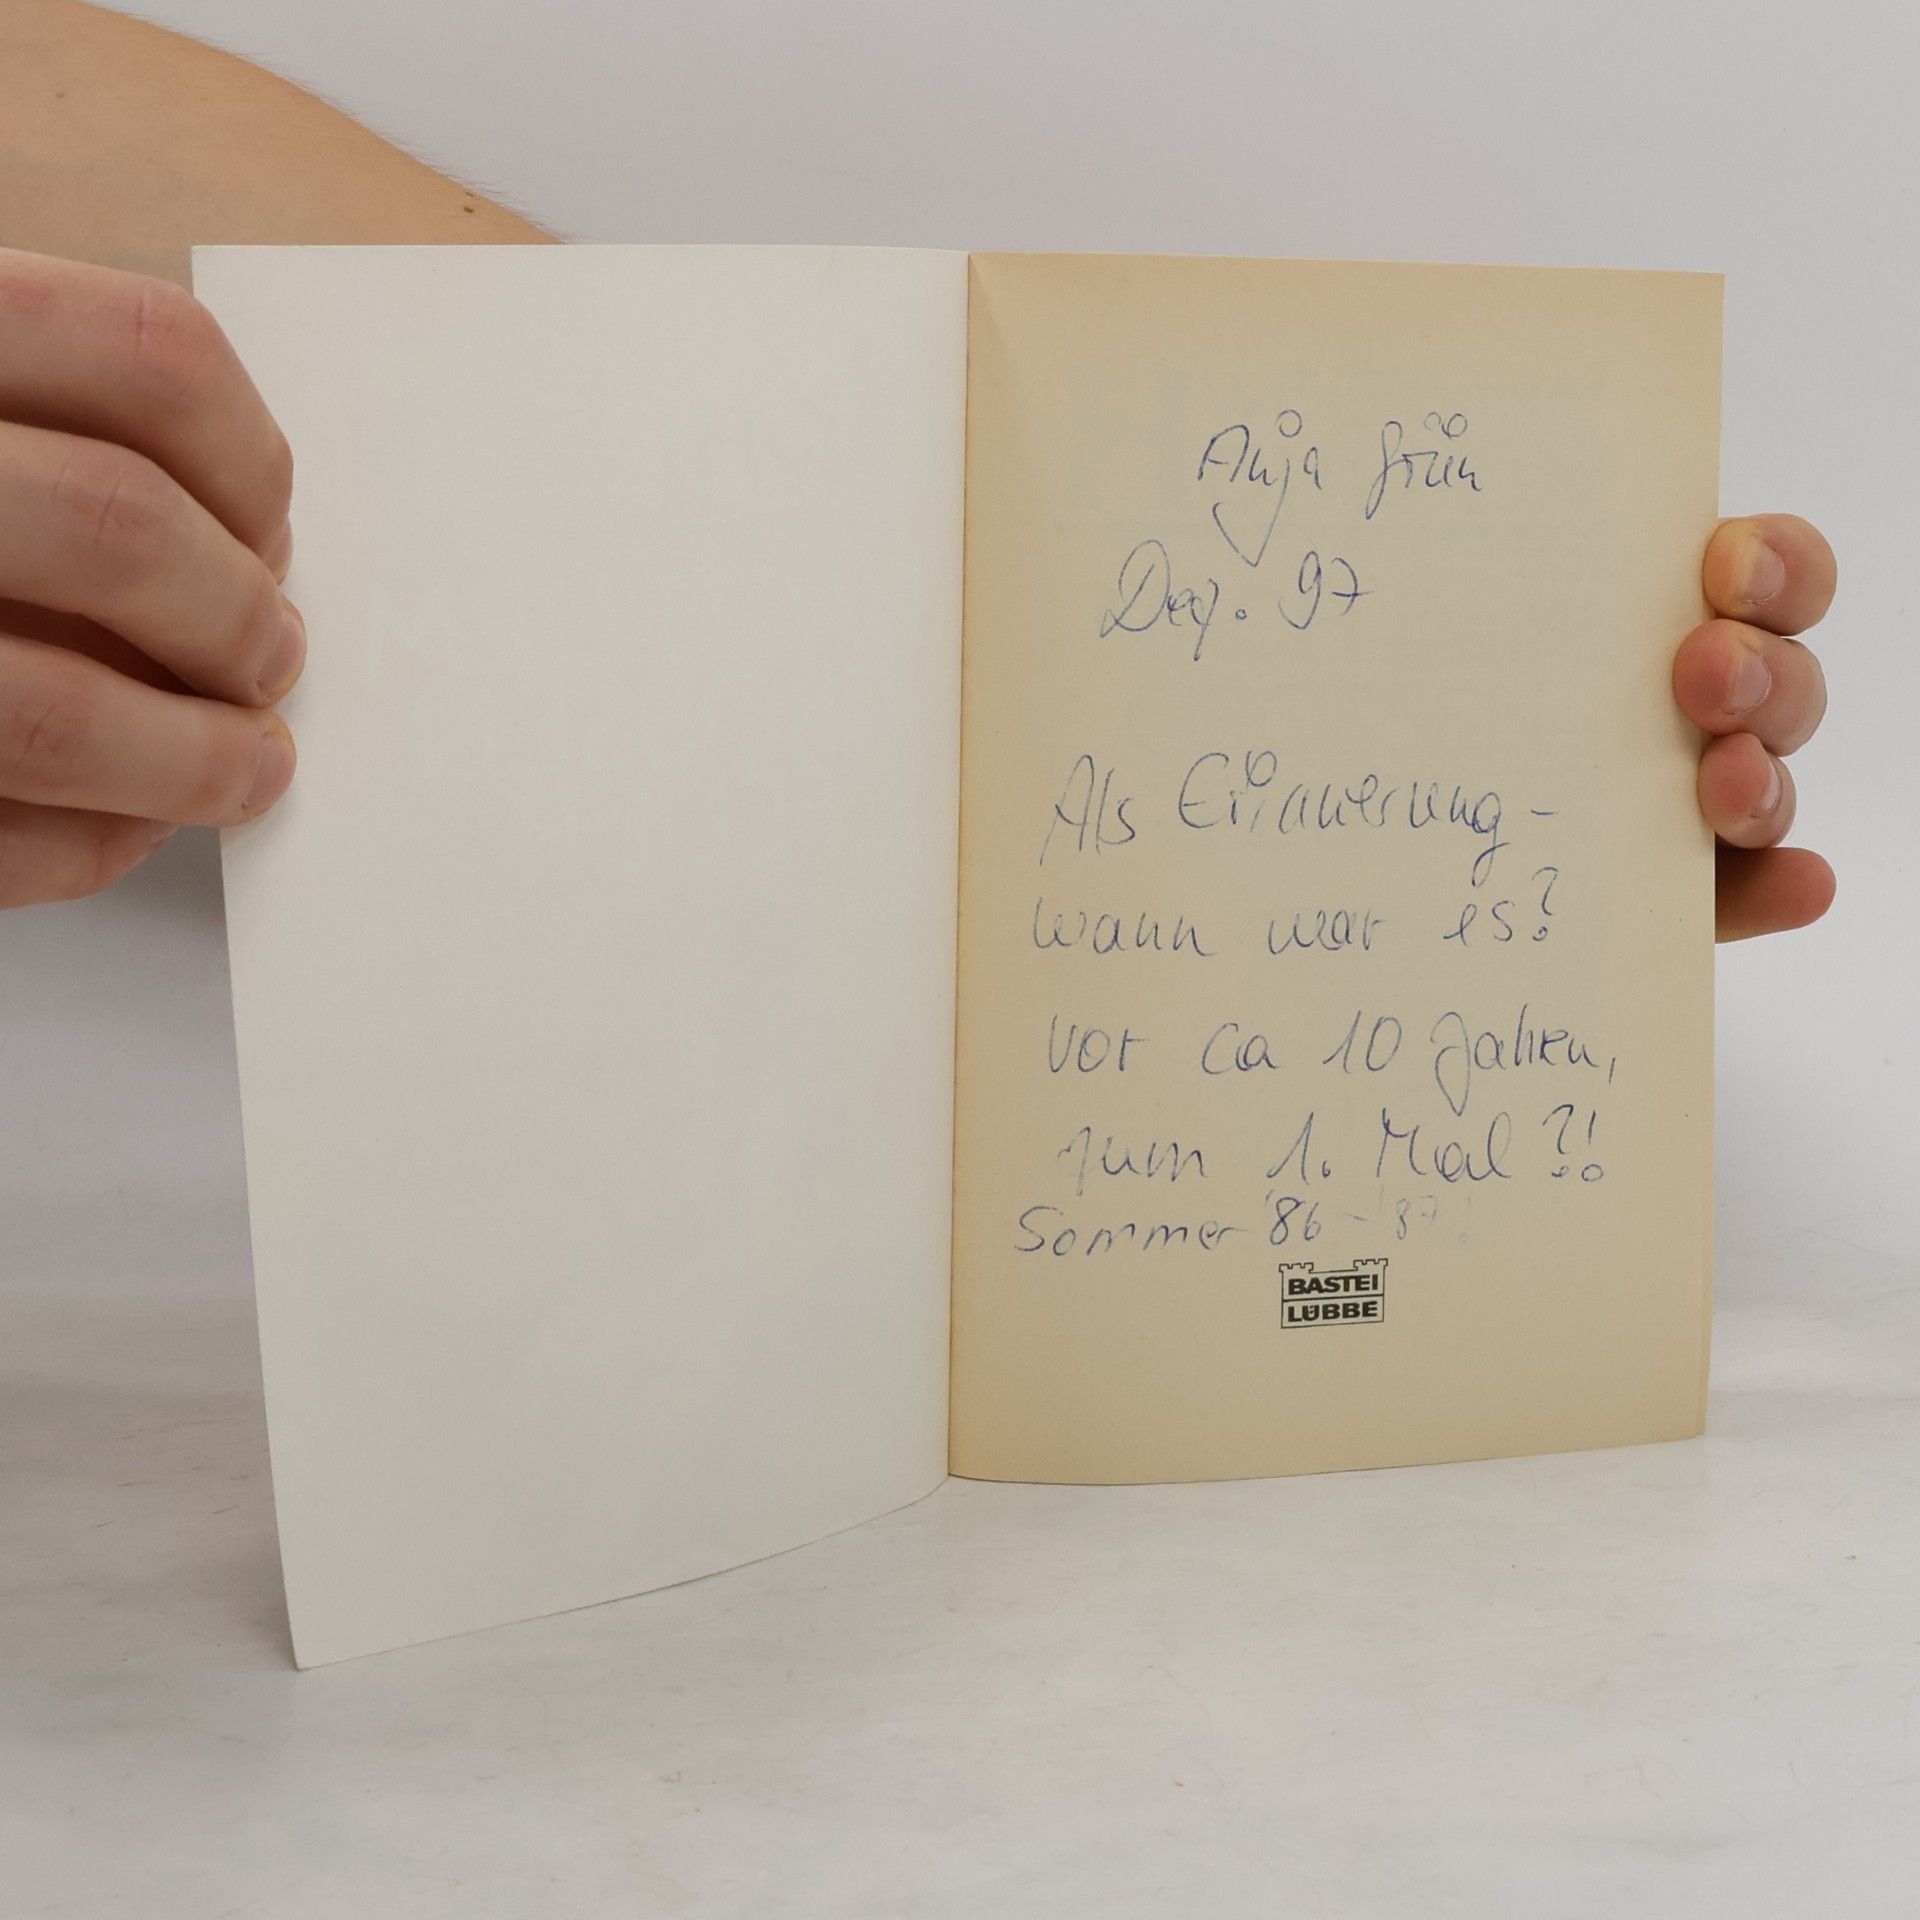 Anja Grün
Dez. 97
Als Erinnerung -
wann war es?
vor ca 10 Jahren,
zum 1. Mal ?!
Sommer '86 - '87!
BASTEI
LÜBBE